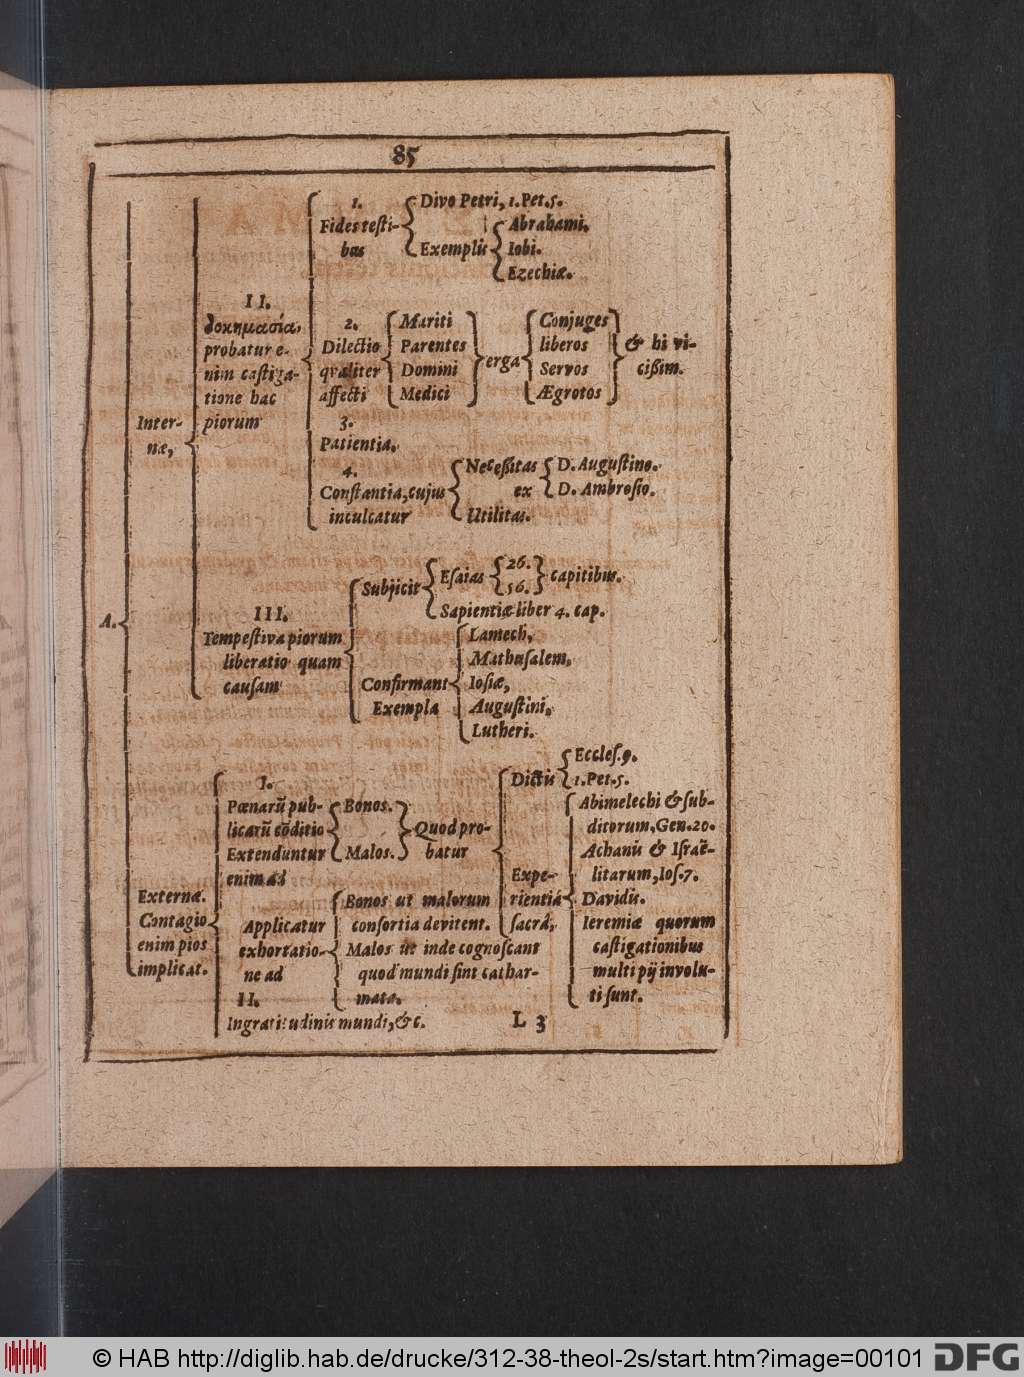 85
A.
Inter-
næ,
II.
δοκιμασία,
probatur e-
nim castiga-
tione hac
piorum
1.
Fides testi-
bus
Divo Petri, 1. Pet. 5.
Exemplis
Abrahami.
Iobi.
Ezechiæ.
2.
Dilectio
qvaliter
affecti
Mariti
Parentes
Domini
Medici
erga
Conjuges
liberos
Servos
Ægrotos
& hi vi-
cißim.
3.
Patientia.
4.
Constantia, cujus
inculcatur
Neceßitas
ex
D. Augustino.
D. Ambrosio.
Utilitas.
III.
Tempestiva piorum
liberatio quam
causam
Subjicit
Esaias
26.
56.
capitibus.
Sapientiæ liber 4. cap.
Confirmant
Exempla
Lamech,
Mathusalem,
Iosiæ,
Augustini,
Lutheri.
Externæ.
Contagio
enim pios
implicat.
I.
Pœnarū pub-
licarū cōditio
Extenduntur
enim ad
Bonos.
Malos.
Quod pro-
batur
Dictis
Eccles. 9.
1. Pet. 5.
Expe-
rientiâ
sacrâ,
Abimelechi & sub-
ditorum, Gen. 20.
Achanis & Israē-
litarum, Ios. 7.
Davidis.
Ieremiæ quorum
castigationibus
multi pij involu-
ti sunt.
Applicatur
exhortatio-
ne ad
Bonos ut malorum
consortia devitent.
Malos ut inde cognoscant
quod mundi sint cathar-
mata.
II.
Ingratitudinis mundi, &c.
L 3
© HAB http://diglib.hab.de/drucke/312-38-theol-2s/start.htm?image=00101
DFG